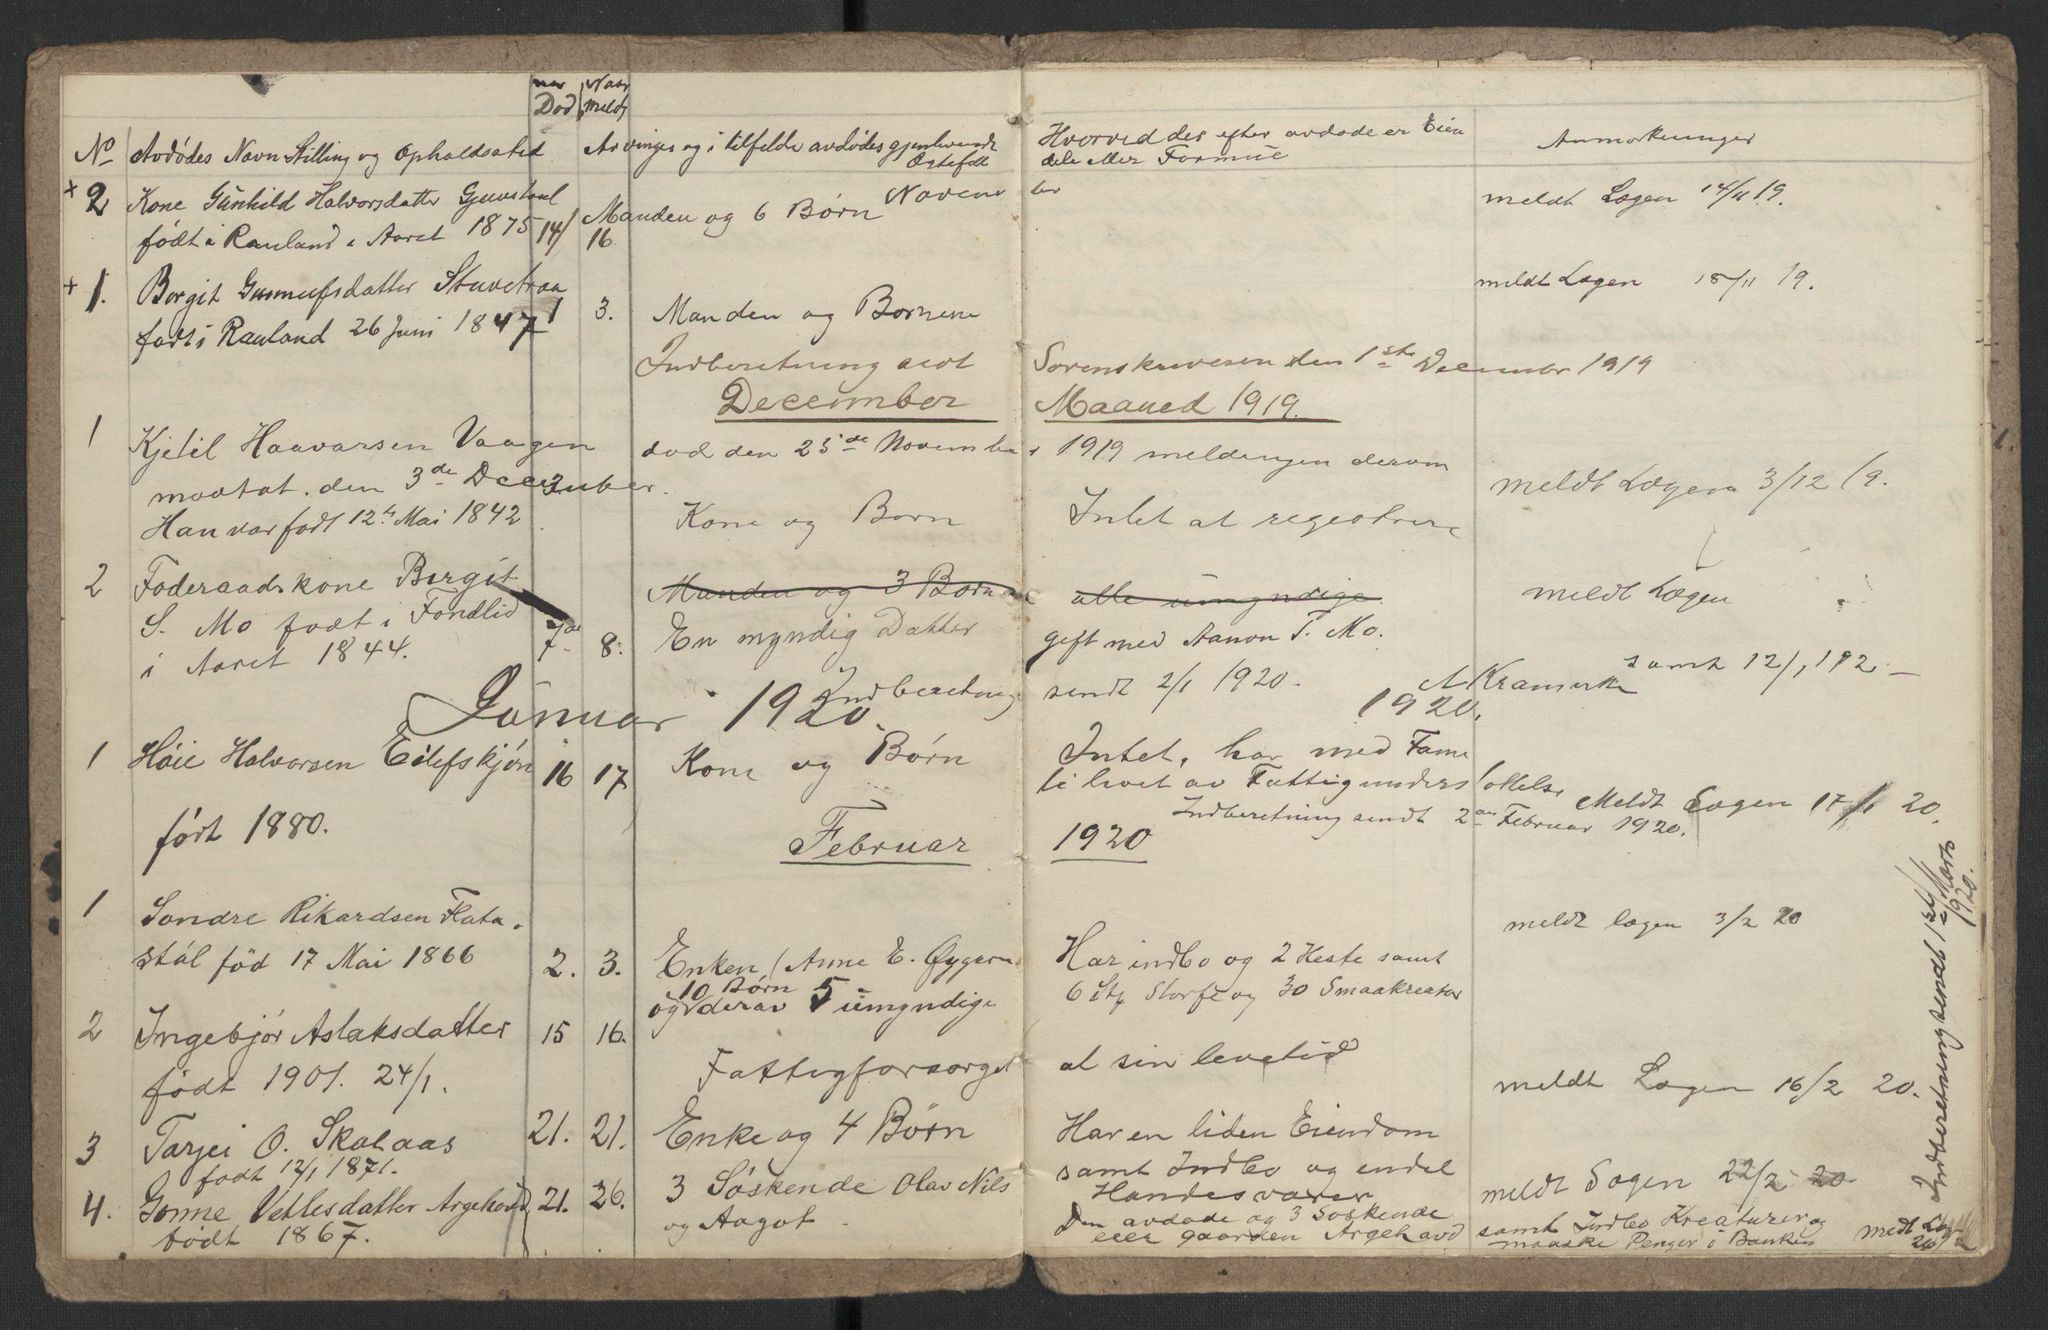 No Avdódes Navn Stilling og Opholdssted Dod Naar meldt Arvinger og i tilfelde avdødes gjenlevende Ægtefelle Hvorved der efter avdøde er Eien dele eller Formue Anmerkninger
+ 2 Kone Gunhild Halvorsdatter Manden og 6 Børn Novem ber meldt Lægen 14/11 19.
født i Rauland i Aaret 1875 14/ 16
+ 1. Borgit Gunnufsdatter 1 3. Manden og Børnene meldt Lægen 18/11 19.
født i Rauland 26 Juni 1847
Indberetning sent Sorenskriveren den 1ste December 1919
December Maaned 1919.
1 Kjetil Haavarsen Vaagen død den 25de November 1919 meldingen derom
mottat. den 3de December. meldt Lægen 3/12 19.
Han var født 12te Mai 1842 Kone og Born Intet at registrere
2 Føderaadskone Borgit Manden og 3 Born alle umyndige. meldt Lægen
S. Mo født i 7de 8. En myndig Datter gift med Aanon T. Mo.
i Aaret 1844. samt 12/1 192
Indberetning sendt 2/1 1920.
Januar 1920. 1920.
1 Høie Halvorsen Eilefskjøn 16 17. Kone og Børn Intet, har med Fame
li levet av Fattigunderstøttelse Meldt Lægen 17/1 20.
født 1880. Indberetning sendt 2den Februar 1920.
Februar 1920
1 Sondre Rikardsen Flata- meldt lægen 3/2 20
stål fød 17 Mai 1866 2. 3. Enken (Anne E. Har indbo og 2 Heste samt
og 10 Børn derav 5 umyndige 6 Stk Storfe og 30 Smaakreater
2 Ingebjør Aslaksdatter 15 16.
født 1901. 24/1. Fattigforsørget al sin levetid meldt Lægen 16/2 20.
3 Tarjei O. Skalaas 21. 21. Enke og 4 Børn Har en liden Eiendom
født 12/1 1871. samt Indbo og endel
Handesvarer meldt Lægen 22/2 20
4. Gonne Vetlesdatter Argehovd 21. 26. 3 Søskende Olav Nils Den avdøde og 3 Søskende samt Indbo Kreaturer og
født 1867. og Aagot. eier gaarden Argehovd maaske Penger i Banken meldt
Indberetning sendt 1st/ Marts 1920.